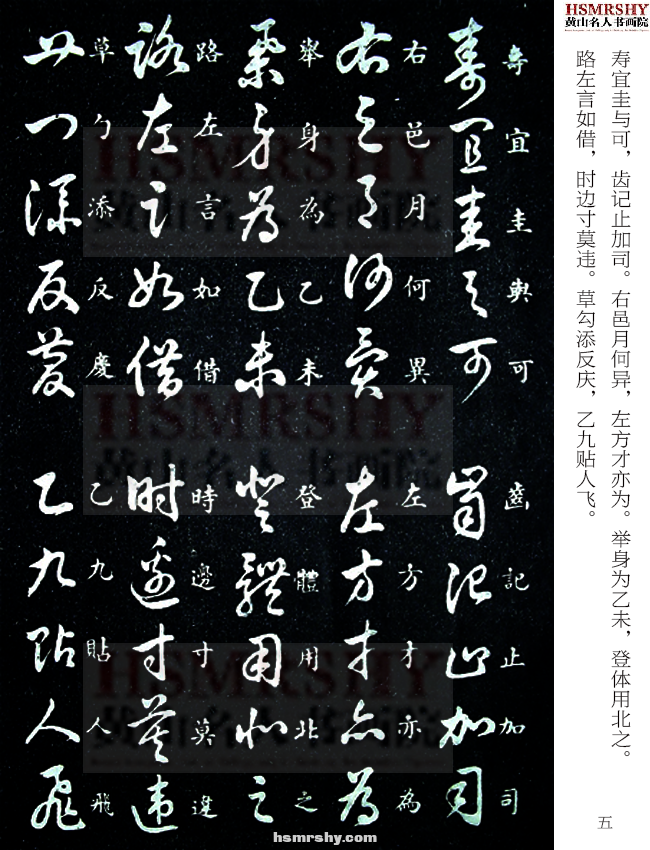 HSMRSHY
黄山名人书画院
寿宜圭与可，齿记止加司。右邑月何异，左方才亦为。举身为乙未，登体用北之。
路左言如借，时边寸莫违。草勾添反庆，乙九贴人飞。
壽宜圭與可
齒記止加司
右邑月何異
左方才亦為
舉身為乙未
登體用北之
路左言如借
時邊寸莫違
草勾添反慶
乙九貼人飛
HSMRSHY
黄山名人书画院
HSMRSHY
黄山名人书画院
HSMRSHY
黄山名人书画院
五
hsmrshy.com